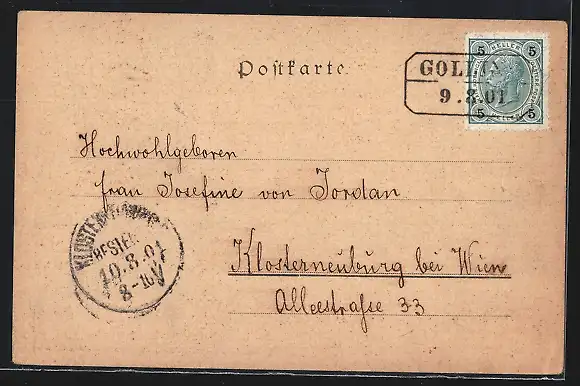 Postkarte.
5 HELLER 5
GOLLING
9.8.01
5 5
Hochwohlgeboren
frau Josefine von Jordan
Klosterneuburg bei Wien
Alleestraße 33
KLOSTERNEUBURG
BESTELLT
10.8.01
8-10V